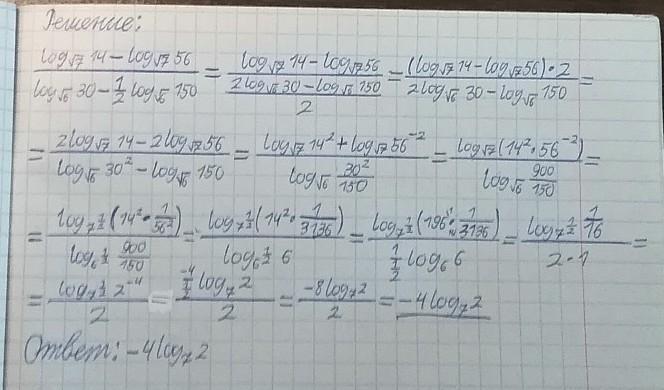 Решение:
(log_√7 14 − log_√7 56)/(log_√6 30 − 1/2 log_√6 150) = (log_√7 14 − log_√7 56)/((2log_√6 30 − log_√6 150)/2) = ((log_√7 14 − log_√7 56)·2)/(2log_√6 30 − log_√6 150) =
= (2log_√7 14 − 2log_√7 56)/(log_√6 30² − log_√6 150) = (log_√7 14² + log_√7 56⁻²)/(log_√6 30²/150) = (log_√7 (14²·56⁻²))/(log_√6 900/150) =
= (log_7^(1/2) (14²·1/56²))/(log_6^(1/2) 900/150) = (log_7^(1/2) (14²·1/3136))/(log_6^(1/2) 6) = (log_7^(1/2) (196·1/3136))/(1/(1/2) log_6 6) = (log_7^(1/2) 1/16)/(2·1) =
= (log_7^(1/2) 2⁻⁴)/2 = (−4/(1/2) log_7 2)/2 = (−8log_7 2)/2 = −4log_7 2
Ответ: −4log_7 2